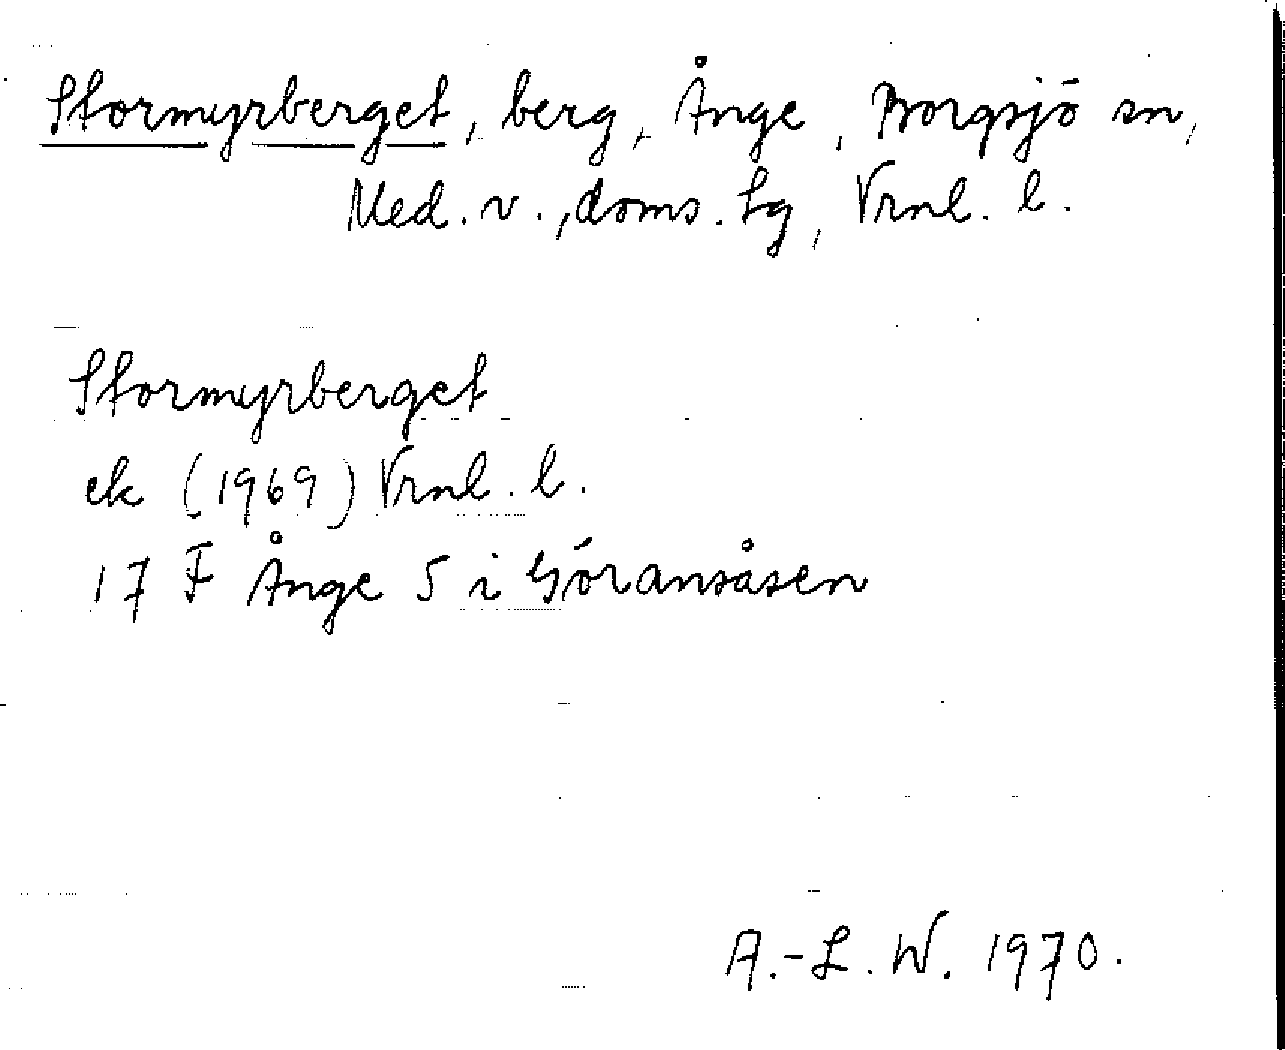 Stormyrberget, berg, Ånge, Borgsjö sn,
Med. v., doms. Lg, Vrnl. l.
Stormyrberget
ek (1969) Vrnl. l.
17 F Ånge 5 i Göransåsen
A.-L. W. 1970.